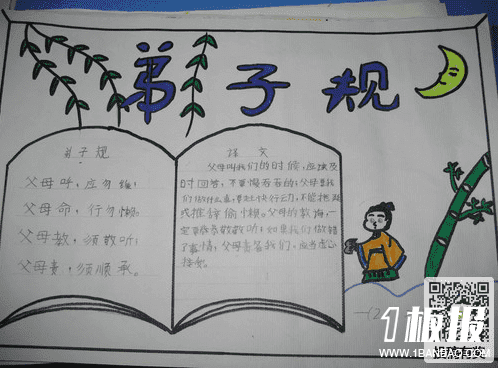 弟子规
弟子规
父母呼，应勿缓；
父母命，行勿懒。
父母教，须敬听；
父母责，须顺承。
译文
父母叫我们的时候，应该及
时回答，不要慢吞吞的；父母要我
们做什么事，要赶快行动，不能拖延
或推辞偷懒。父母的教诲，一
定要恭恭敬敬听；如果我们做错
了事情，父母责备我们，应当虚心
接受。
一(2
1板报
WWW.1BANBAO.COM